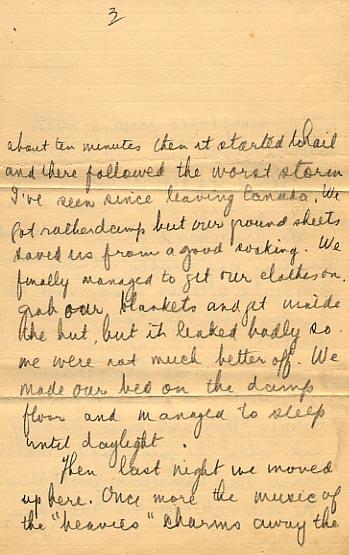 3
about ten minutes then it started to hail
and there followed the worst storm
I've seen since leaving Canada. We
got rather damp but our ground sheets
saved us from a good soaking. We
finally managed to get our clothes on,
grab our blankets and get inside
the hut, but it leaked badly so
we were not much better off. We
made our bed on the damp
floor and managed to sleep
until daylight.
Then last night we moved
up here. Once more the music of
the "heavies" charms away the